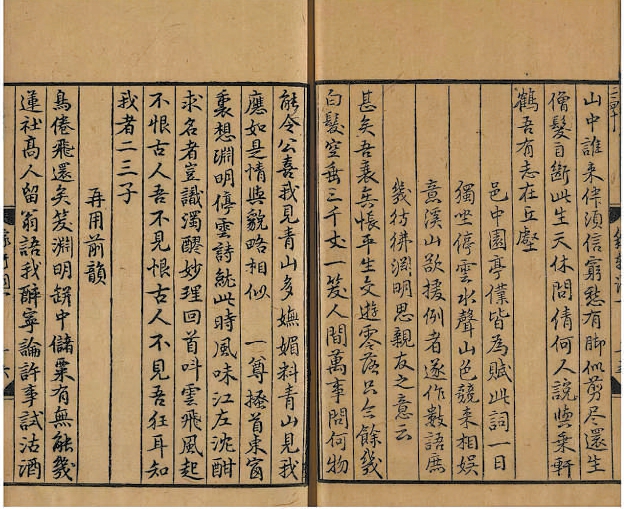 山中誰來伴須信窮愁有脚似剪尽還生
僧髮自斷此生天休問倩何人說與乘軒
鶴吾有志在丘壑
邑中園亭僕皆為賦此詞一日
獨坐停雲水聲山色競來相娱
意溪山欲援例者遂作數語庶
幾彷彿淵明思親友之意云
甚矣吾衰矣悵平生交遊零落只今餘幾
白髮空垂三千丈一笑人間萬事問何物
能令公喜我見青山多嫵媚料青山見我
應如是情與貌略相似 一尊搔首東窗
裏想淵明停雲詩就此時風味江左沈酣
求名者豈識濁醪妙理回首叫雲飛風起
不恨古人吾不見恨古人不見吾狂耳知
我者二三子
再用前韻
鳥倦飛還矣笑淵明缾中儲粟有無能幾
蓮社高人留翁語我醉寧論許事試沽酒